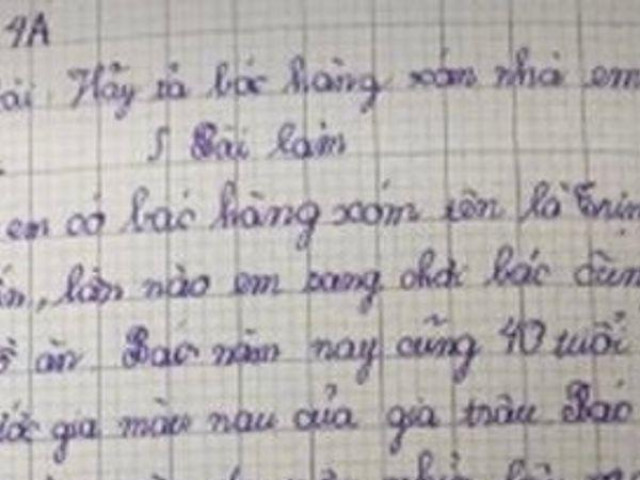 4A
ài Hãy tả bác hàng xóm nhà em
Bài làm
em có bác hàng xóm tên là Trịn
ín, lần nào em sang chơi bác cũn
ồ ăn Bác năm nay cũng 40 tuổi
ước gia màu nau của gia trâu Bác